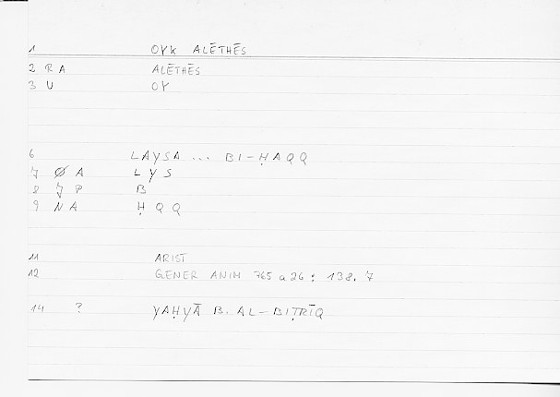 1 OYK ALĒTHĒS
2 R A ALĒTHĒS
3 U OY
6 LAYSA ... BI-ḤAQQ
7 Ø A L Y S
8 P B
9 N A Ḥ Q Q
11 ARIST
12 GENER ANIM 765 a 26 : 138, 7
14 ? YAḤYĀ B. AL-BIṬRĪQ